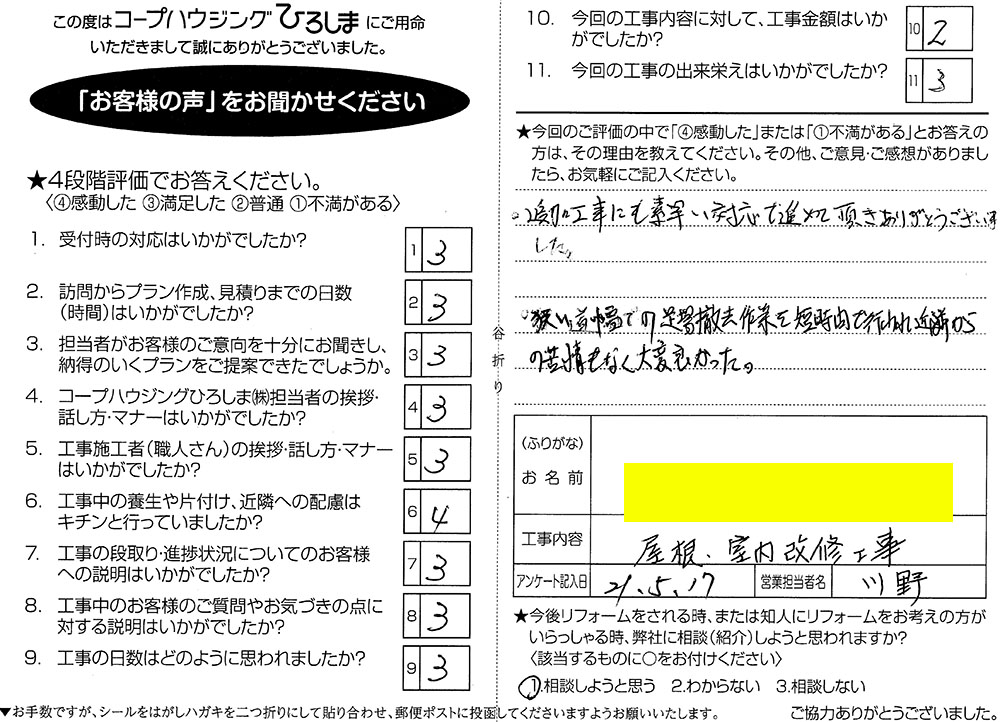 この度はコープハウジングひろしまにご用命
いただきまして誠にありがとうございました。
「お客様の声」をお聞かせください
★4段階評価でお答えください。
〈④感動した ③満足した ②普通 ①不満がある〉
1. 受付時の対応はいかがでしたか? 1 3
2. 訪問からプラン作成、見積りまでの日数
(時間)はいかがでしたか? 2 3
3. 担当者がお客様のご意向を十分にお聞きし、
納得のいくプランをご提案できたでしょうか。 3 3
4. コープハウジングひろしま㈱担当者の挨拶・
話し方・マナーはいかがでしたか? 4 3
5. 工事施工者(職人さん)の挨拶・話し方・マナー
はいかがでしたか? 5 3
6. 工事中の養生や片付け、近隣への配慮は
キチンと行っていましたか? 6 4
7. 工事の段取り・進捗状況についてのお客様
への説明はいかがでしたか? 7 3
8. 工事中のお客様のご質問やお気づきの点に
対する説明はいかがでしたか? 8 3
9. 工事の日数はどのように思われましたか? 9 3
▼お手数ですが、シールをはがしハガキを二つ折りにして貼り合わせ、郵便ポストに投函してくださいますようお願いいたします。
谷折り
10. 今回の工事内容に対して、工事金額はいか
がでしたか? 10 2
11. 今回の工事の出来栄えはいかがでしたか? 11 3
★今回のご評価の中で「④感動した」または「①不満がある」とお答えの
方は、その理由を教えてください。その他、ご意見・ご感想がありまし
たら、お気軽にご記入ください。
。追加工事にも素早い対応で進めて頂きありがとうございま
した。
。狭い道幅での足場撤去作業を短時間で行われ近隣から
の苦情もなく大変良かった。
(ふりがな)
お名前
工事内容 屋根、室内改修工事
アンケート記入日 21.5.17 営業担当者名 川野
★今後リフォームをされる時、または知人にリフォームをお考えの方が
いらっしゃる時、弊社に相談(紹介)しようと思われますか?
〈該当するものに○をお付けください〉
1.相談しようと思う 2.わからない 3.相談しない
ご協力ありがとうございました。